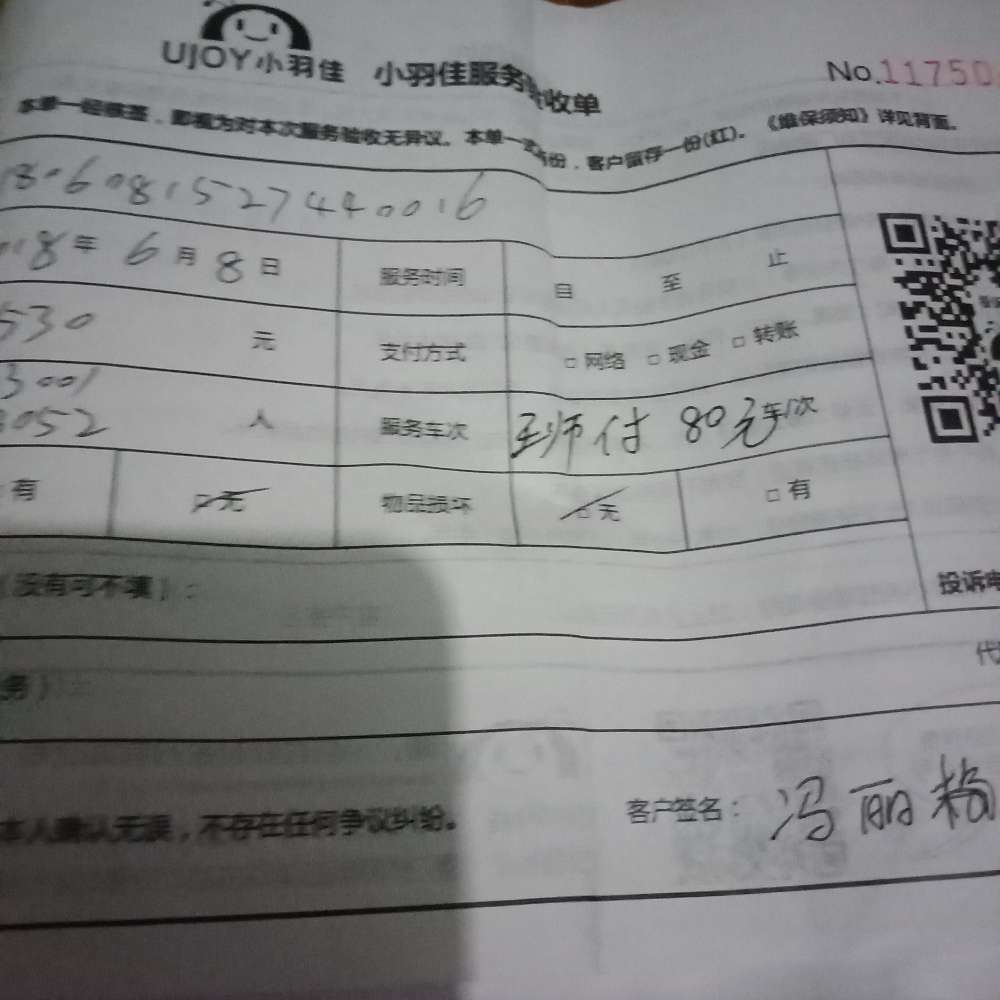 UJOY小羽佳 小羽佳服务收单
No.11750
本单一经核签,即视为对本次服务验收无异议。本单一式份,客户留存一份(红)。《维保须知》详见背面。
1806081527440016
018年 6月 8日 服务时间 自 至 止
530 元 支付方式 □网络 □现金 □转账
3001
3052 人 服务车次 王师付 80元 车/次
有 □无 物品损坏 □无 □有
(没有可不填):
投诉电
务):
代
本人确认无误,不存在任何争议纠纷。 客户签名:冯丽